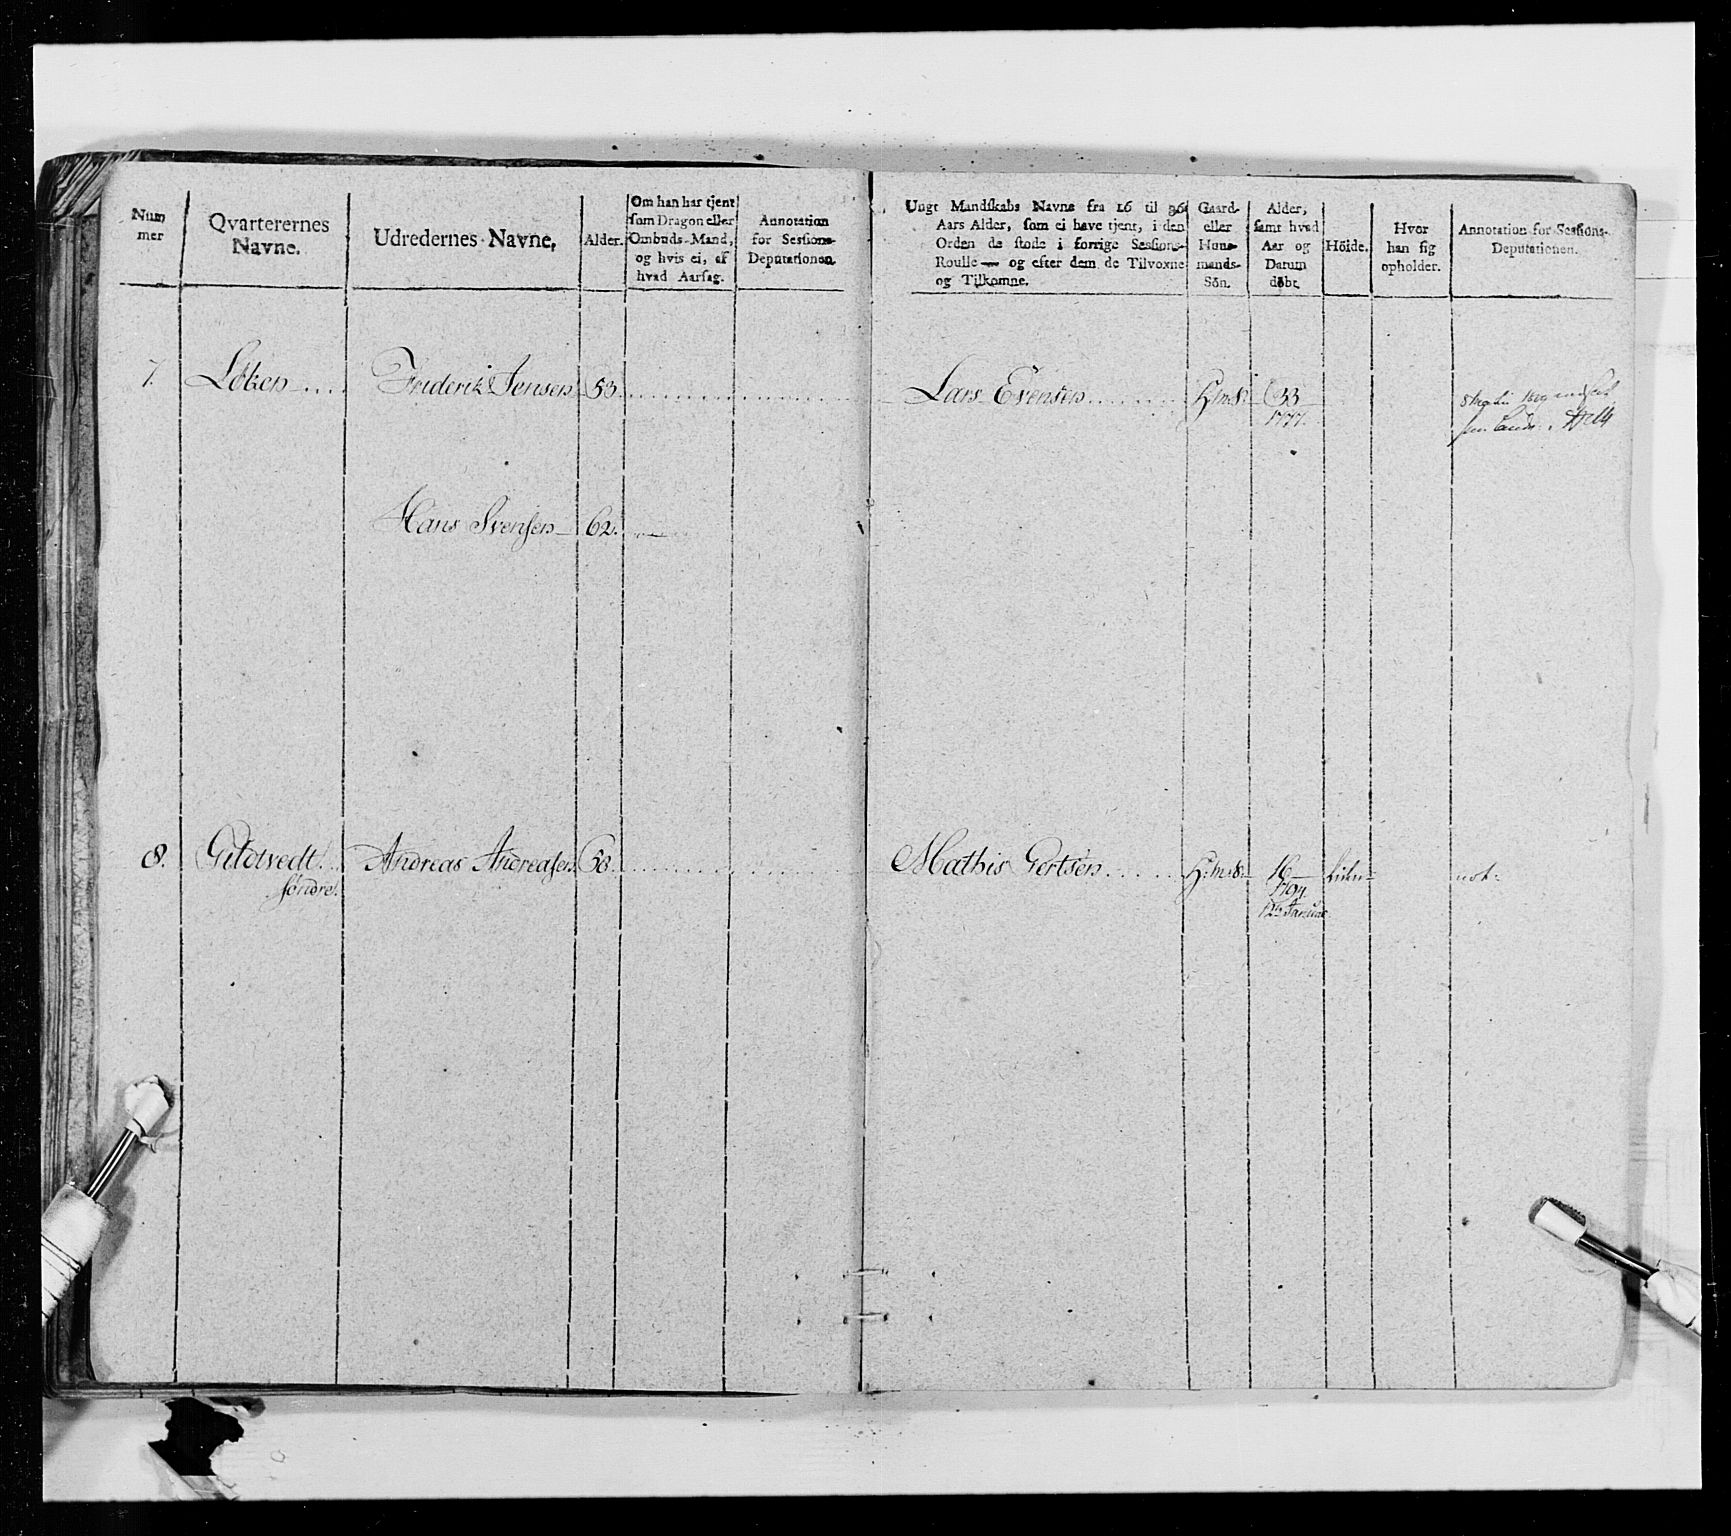 Num
mer
Qvarterernes
Navne.
Udredernes Navne.
Alder.
Om han har tjent
som Dragon eller
Ombuds-Mand,
og hvis ei, af
hvad Aarsag.
Annotation
for Sessions-
Deputationen.
Ungt Mandskabs Navne fra 16 til 36
Aars Alder, som ei have tjent, i den
Orden de stode i forrige Sessions-
Roulle — og efter dem de Tilvoxne
og Tilkomne.
Gaard-
eller
Huus-
mands-
Sön.
Alder,
samt hvad
Aar og
Datum
döbt.
Höide.
Hvor
han sig
opholder.
Annotation for Sessions-
Deputationen.
7. Løken Friderik Jensen 53. Lars Evensen H:m:S: 33
1777.
Hans Svensen 62.
8. Andreas Andreasen 58 Mathis Gertsen H:m:S: 16 Liden
søndre. 1794
12 Januar